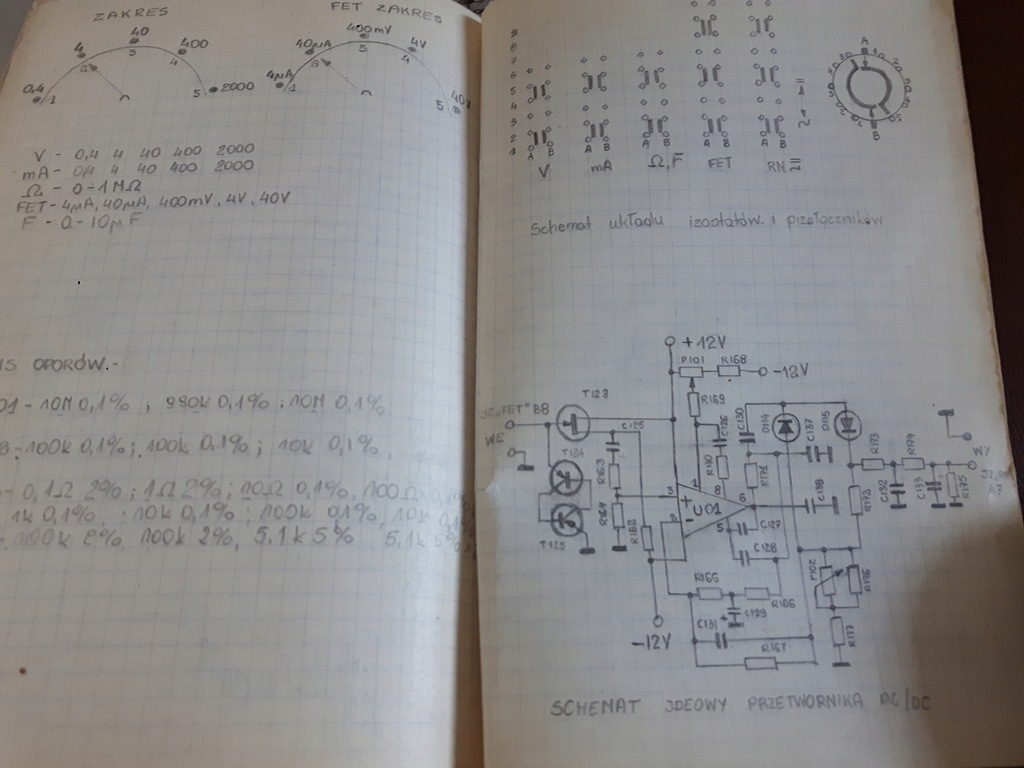 ZAKRES
0,4 4 40 400 2000
1 2 3 4 5
FET ZAKRES
4µA 40µA 400mV 4V 40V
1 2 3 4 5
V - 0,4 4 40 400 2000
mA - 0,4 4 40 400 2000
Ω - 0÷1MΩ
FET - 4µA, 40µA, 400mV, 4V, 40V
F - 0 - 10µF
IS OPORÓW.-
01 - 10M 0,1% ; 990k 0,1% ; 10M 0,1%
100k 0,1% ; 100k 0,1% ; 10k 0,1%.
0,1Ω 2% ; 1Ω 2% ; 10Ω 0,1%, 100Ω 0,1%
1k 0,1%, ; 10k 0,1% ; 100k 0,1%, 10k 0,1%
100k 2%, 100k 2%, 5.1k 5% 5,1k 5%
9
8
7
6
5
4
3
2
1
A B A B A B A B A B
V mA Ω,F FET RN
A
B
Schemat układu izostatów i przełączników
+12V
P101 R168
-12V
R169
T123
"FET" B8
WE
T124
T125
C125
R163
R164
R162
C126
R170
C130
R171
D114
C137
D115
R173
R174
WY
U01
C127
C128
C138
R172
C132
C133
R175
R165
C129
R166
C131
P102
R176
R177
-12V
R167
SCHEMAT IDEOWY PRZETWORNIKA AC/DC